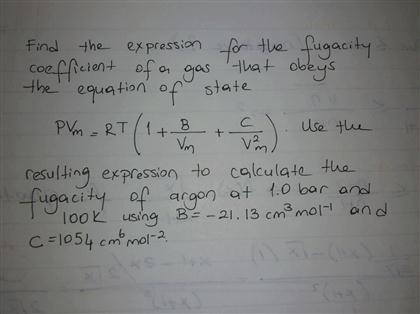 Find the expression for the fugacity
coefficient of a gas that obeys
the equation of state
PVm = RT ( 1 + B/Vm + C/V²m ). Use the
resulting expression to calculate the
fugacity of argon at 1.0 bar and
100K using B = -21.13 cm³ mol⁻¹ and
C = 1054 cm⁶ mol⁻².